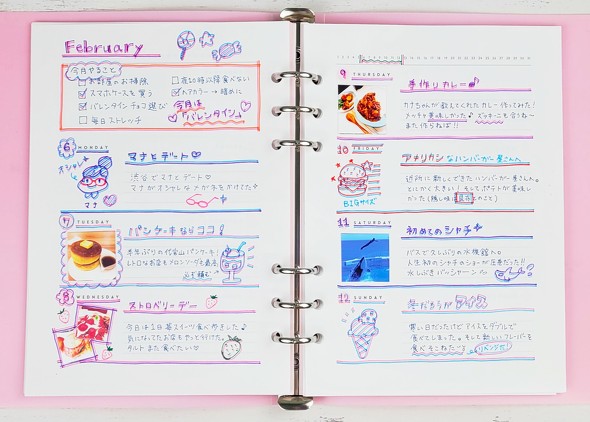 February
今月やること
お部屋のお掃除
スマホケースを買う
バレンタインチョコ選び
毎日ストレッチ
夜20時以降食べない
ヘアカラー→暗めに
今月は
「バレンタイン」
6 MONDAY
マナとデート♡
オシャレ
マナ
渋谷でマナとデート♡
マナがオシャレなメガネをかけてた
7 TUESDAY
パンケーキならココ!
半年ぶりの代官山パンケーキ!
レトロなお店もメロンソーダも最高
8 WEDNESDAY
ストロベリーデー
今日は1日苺スイーツ食べ歩きした♪
気になってたお店もやっと行けた。
タルトまた食べたい♡
9 THURSDAY
手作りカレー♪
カナちゃんが教えてくれたカレー作ってみた!
メッチャ美味しかった♪ズッキーニも合うね〜
また作らねば!!
10 FRIDAY
アメリカンなハンバーガー屋さん
BIGサイズ
近所に新しくできたハンバーガー屋さん。
とにかく大きい!そしてポテトが美味し
かった(隠し味は
とのこと)
11 SATURDAY
初めてのシャチ
バスで久しぶりの水族館へ。
人生初のシャチのショーが圧巻だった!!
水しぶきバシャーーン
12 SUNDAY
冬だからアイス
寒い日だったけどアイスをダブルで
食べてしました。そして新しいフレーバーを
食べそこねたごる
リベンジだ!